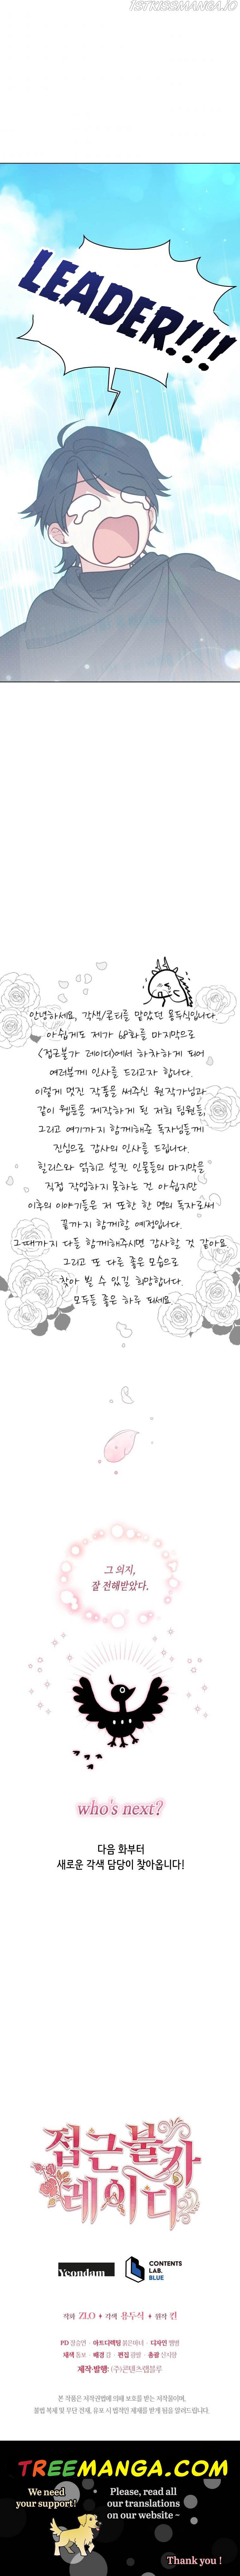 1STKISSMANGA.IO
LEADER!!!
안녕하세요, 각색/콘티를 맡았던 용두식입니다.
아쉽게도 제가 68화를 마지막으로
<접근불가 레이디>에서 하차하게 되어
여러분께 인사를 드리고자 합니다.
이렇게 멋진 작품을 써주신 원작가님과
같이 웹툰을 제작하게 된 저희 팀원들,
그리고 여기까지 함께해준 독자님들께
진심으로 감사의 인사를 드립니다.
힐리스와 얽히고 설킨 인물들의 마지막을
직접 작업하지 못하는 건 아쉽지만
이후의 이야기들은 저 또한 한 명의 독자로써
끝까지 함께할 예정입니다.
그때까지 다들 함께해주시면 감사할 것 같아요
그리고 또 다른 좋은 모습으로
찾아 뵐 수 있길 희망합니다.
모두들 좋은 하루 되세요
그 의지,
잘 전해받았다.
who's next?
다음 화부터
새로운 각색 담당이 찾아옵니다!
접근불가
레이디
Yeondam
CONTENTS
LAB.
BLUE
작화 ZLO ♦ 각색 용두식 ♦ 원작 킨
PD 장승연 · 아트디렉팅 붉은마녀 · 디자인
채색 · 배경 김 · 편집 · 총괄 신지함
제작·발행: (주)콘텐츠랩블루
본 작품은 저작권법에 의해 보호를 받는 저작물이며,
불법 복제 및 무단 전재, 유포 시 법적인 제재를 받게 됨을 알려드립니다.
TREEMANGA.COM
We need
your support!
Please, read all
our translations
on our website ~
Thank you !